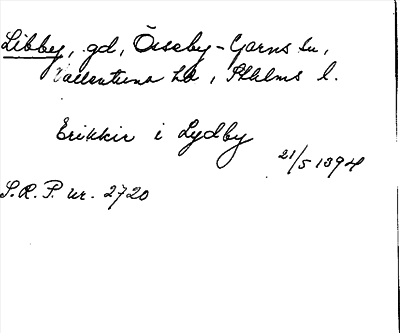 Libby, gd, Össeby-Garns sn,
Vallentuna hd, Sthlms l.
Erikkir i Lydby
21/5 1394
S.R.P. nr. 2720